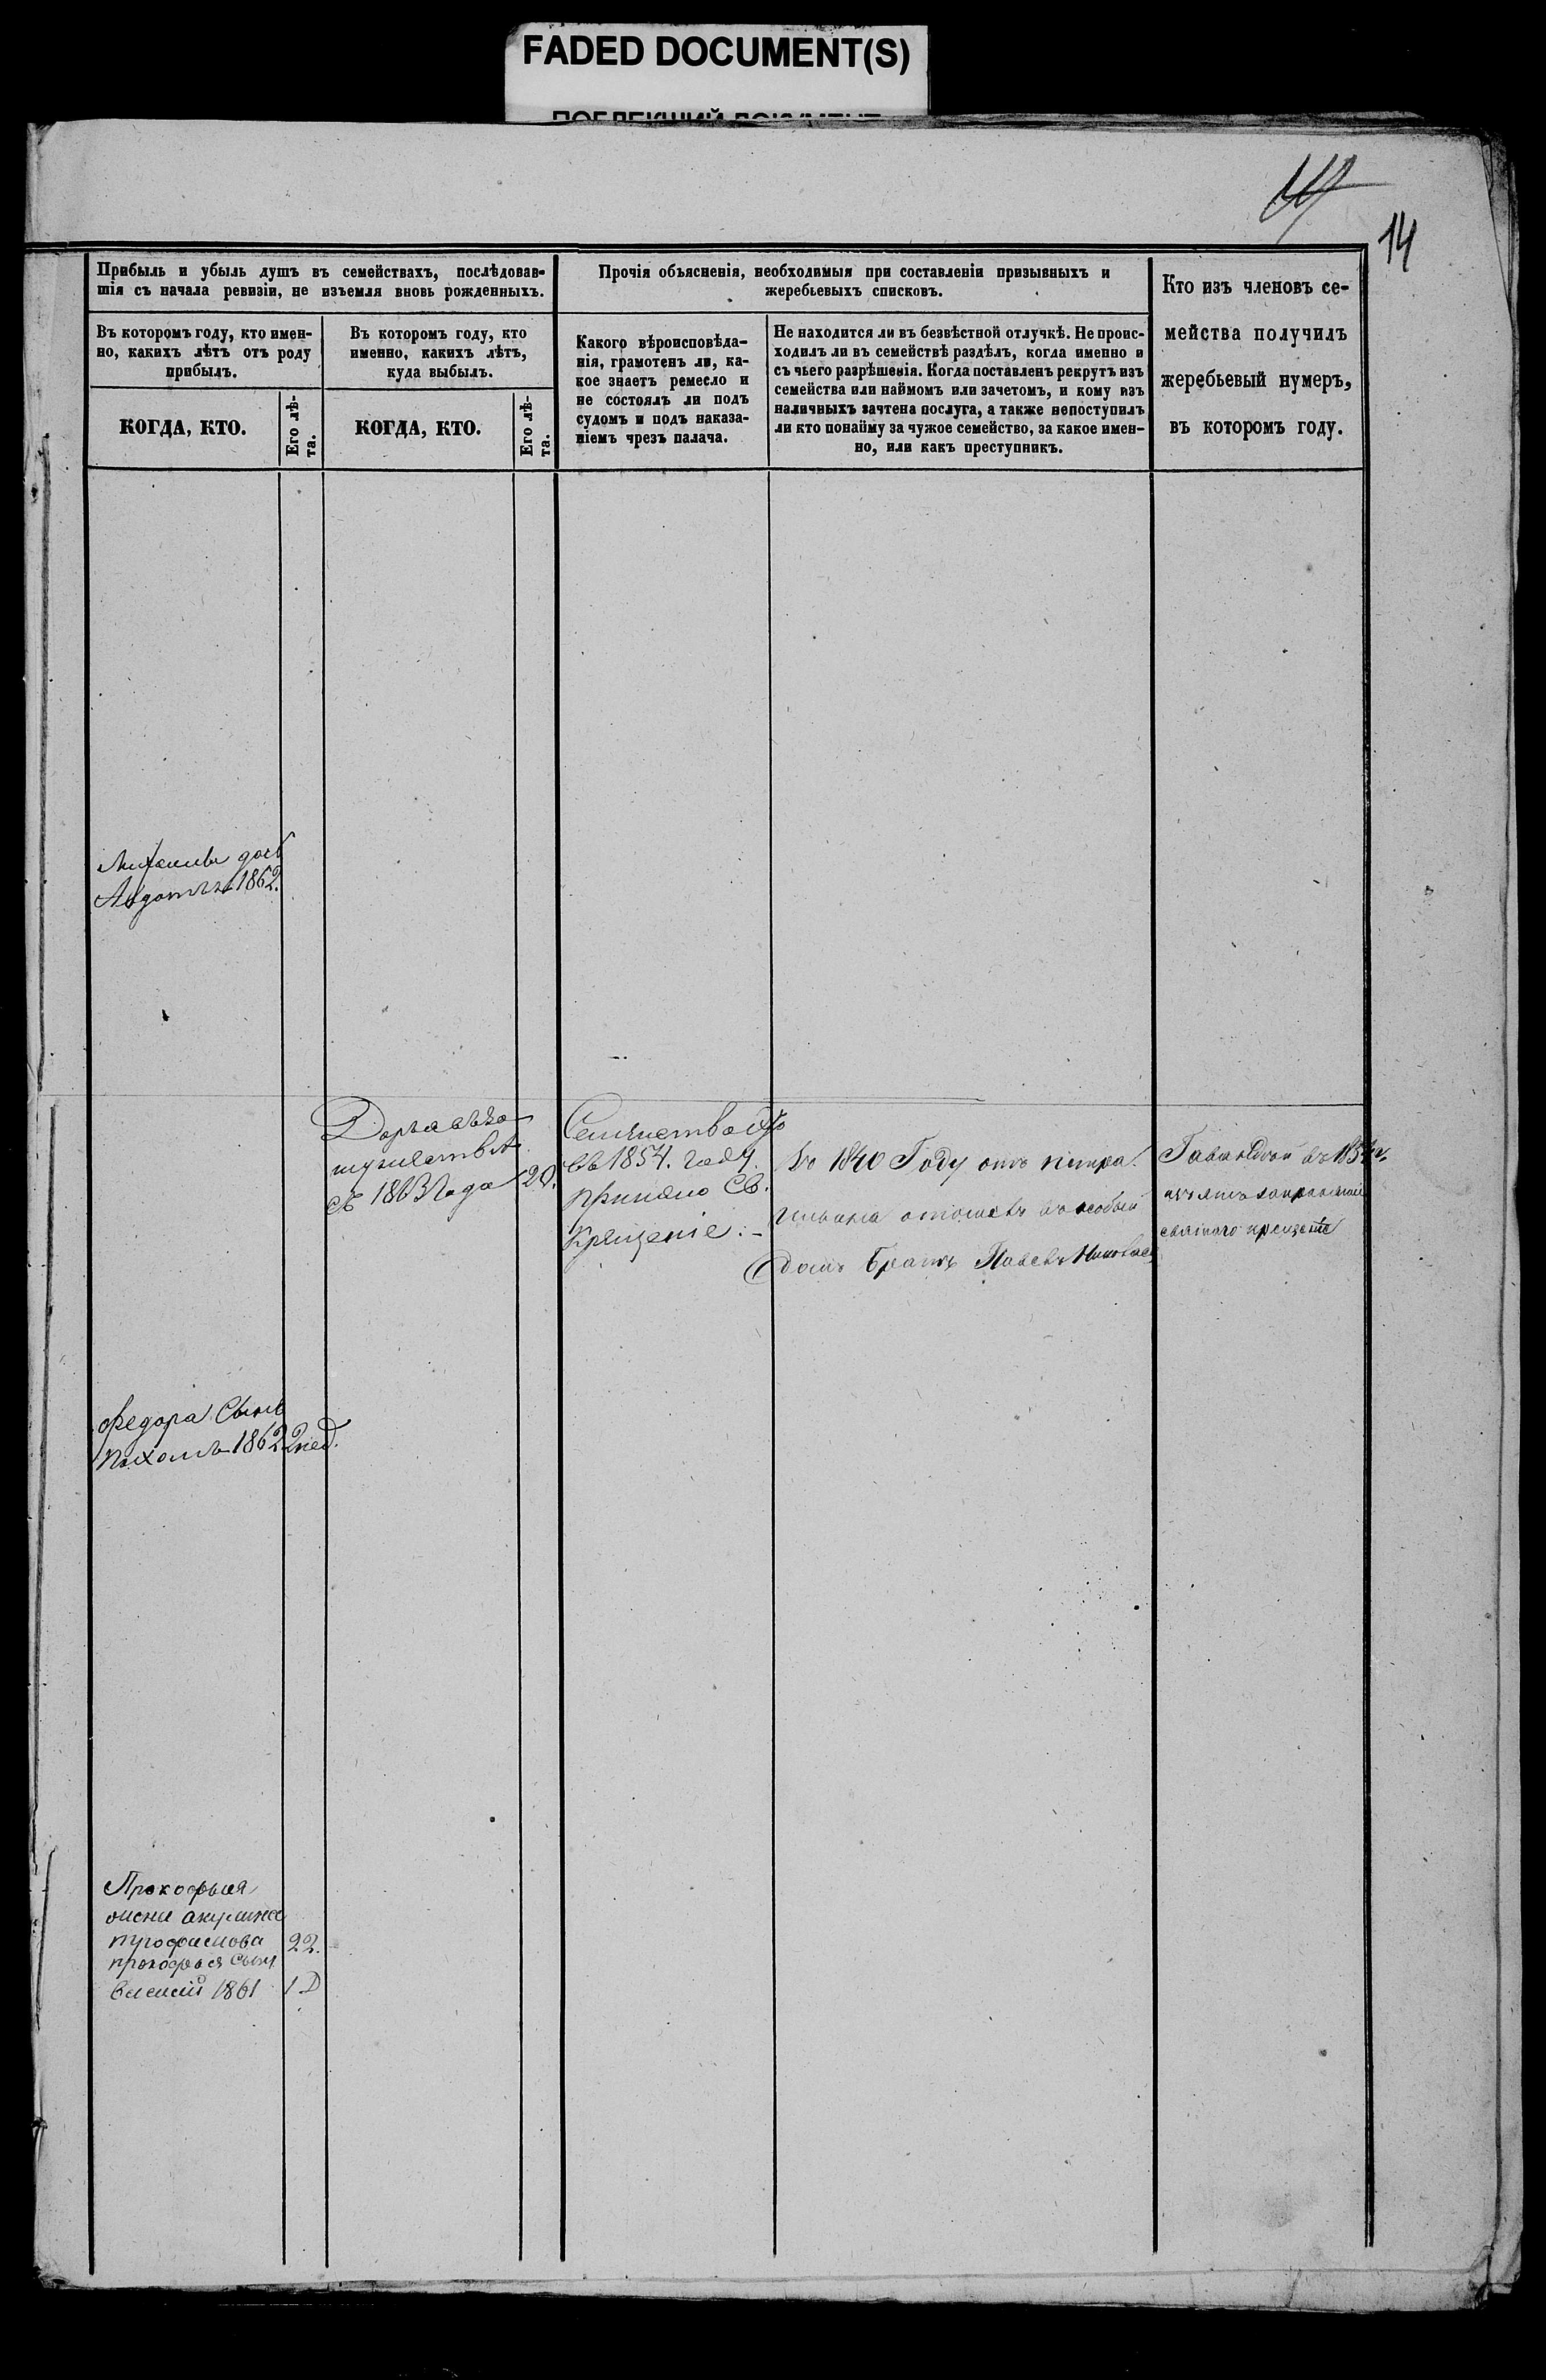 FADED DOCUMENT(S)
14
Прибыль и убыль душъ въ семействахъ, послѣдовав-
шія съ начала ревизіи, не изъемля вновь рожденныхъ.
Прочія объясненія, необходимыя при составленіи призывныхъ и
жеребьевыхъ списковъ.
Кто изъ членовъ се-
мейства получилъ
жеребьевый нумеръ,
въ которомъ году.
Въ которомъ году, кто имен-
но, какихъ лѣтъ отъ роду
прибылъ.
Въ которомъ году, кто
именно, какихъ лѣтъ,
куда выбылъ.
Какого вѣроисповѣда-
нія, грамотенъ ли, ка-
кое знаетъ ремесло и
не состоялъ ли подъ
судомъ и подъ наказа-
ніемъ чрезъ палача.
Не находится ли въ безвѣстной отлучкѣ. Не проис-
ходилъ ли въ семействѣ раздѣлъ, когда именно и
съ чьего разрѣшенія. Когда поставленъ рекрутъ изъ
семейства или наймомъ или зачетомъ, и кому изъ
наличныхъ зачтена послуга, а также непоступилъ
ли кто понайму за чужое семейство, за какое имен-
но, или какъ преступникъ.
КОГДА, КТО.
Его лѣ-
та.
КОГДА, КТО.
Его лѣ-
та.
дочь
1862.
Дарья
съ 1863 Года 20.
Семейство
въ 1854. году.
принято Св.
Крещеніе.
Во 1840 Году отъ петра
въ особый
домъ Братъ Павелъ
въ 1854
святаго крещенія
Федора Сынъ
Пахомъ 1862 2 нед.
Прокофья
акулина
22.
прокофья сынъ
1861 1